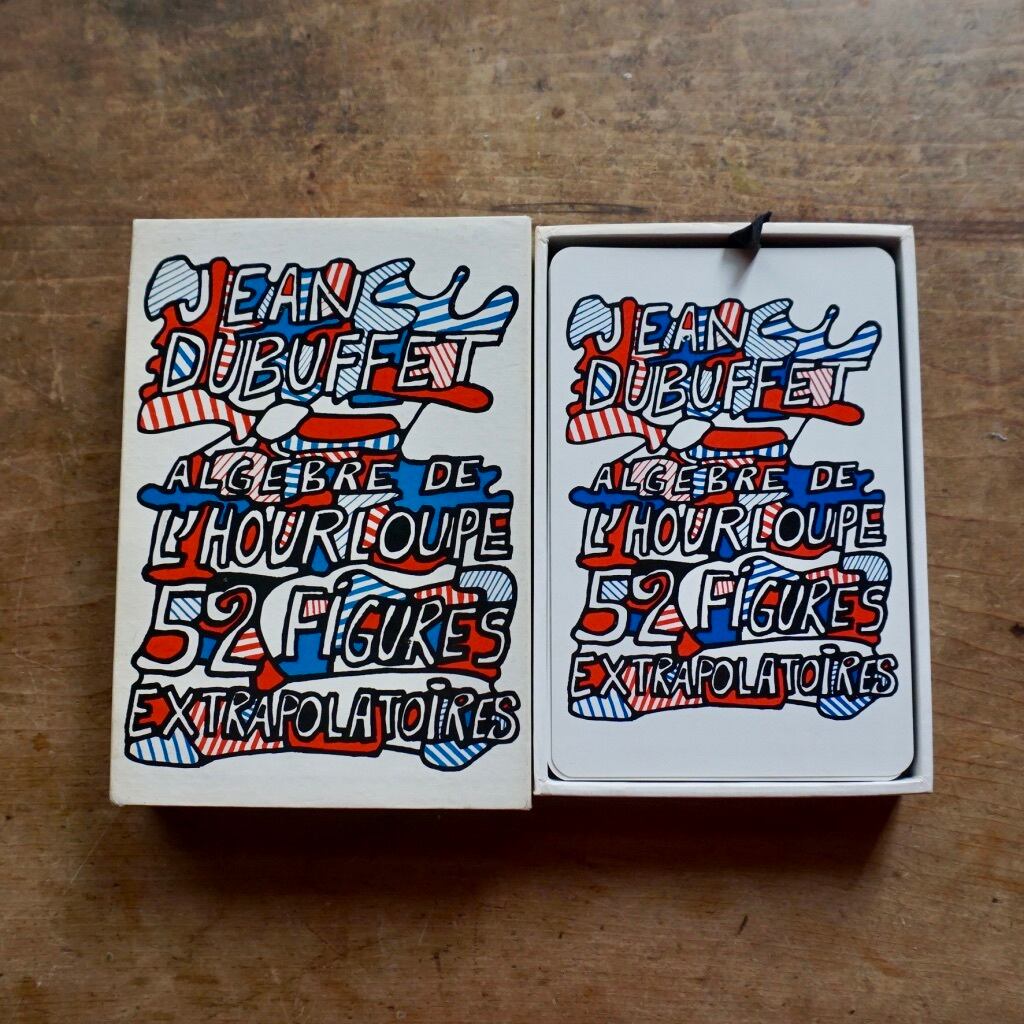 JEAN
DUBUFFET
ALGÈBRE DE
L'HOURLOUPE
52 FIGURES
EXTRAPOLATOIRES
JEAN
DUBUFFET
ALGÈBRE DE
L'HOURLOUPE
52 FIGURES
EXTRAPOLATOIRES